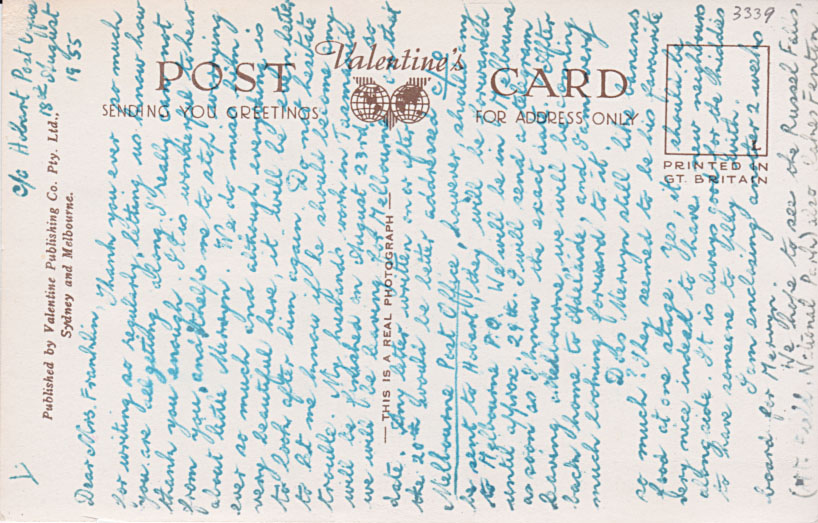 3339
Valentine's
POST CARD
SENDING YOU GREETINGS
FOR ADDRESS ONLY
PRINTED IN
GT. BRITAIN
THIS IS A REAL PHOTOGRAPH
Published by Valentine Publishing Co. Pty. Ltd.,
Sydney and Melbourne.
c/o Hobart Post Office
18th August
1955
Dear Mrs. Franklin,
Thank you ever so much
for writing so regularly, letting us know how
you are all getting along. I really can not
thank you enough. It is wonderful to hear
from you, and helps me to stop worrying
about little Merryn. We do miss him
ever so much and although everything is
very beautiful here, it will be even better
to look after him again. Do not hesitate
to let me know if he should become any
trouble. My husband's work in Tasmania
will be finished on August 23rd, so
we will be leaving for Melbourne on that
date. Any letter written on or after
the 20th would be better addressed c/o
Melbourne Post Office, however should any
be sent to Hobart after, they will be forwarded
to Melbourne P.O. We will be in Melbourne
until approx 29th. I will send a telegram
as soon as I know the exact date. After
leaving Melbourne we will be coming
back home to Adelaide, and I am very
much looking forward to it.
Does Merryn still like bananas
so much? They seemed to be his favourite
food at one stage. Yes, it should be
very nice indeed to have new neighbours
alongside. It is always good for the kiddies
to have someone to play with.
I am enclosing another 2 weeks
board for Merryn.
We hope to see the Russel Falls,
(Mt. Field National Park) also Lake Fenton